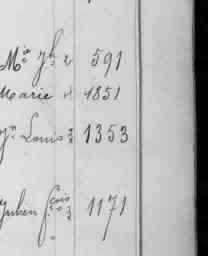 Mie Jh 2 591
Marie 4 1851
Jn Louis 3 1353
Julien fcois 3 1171